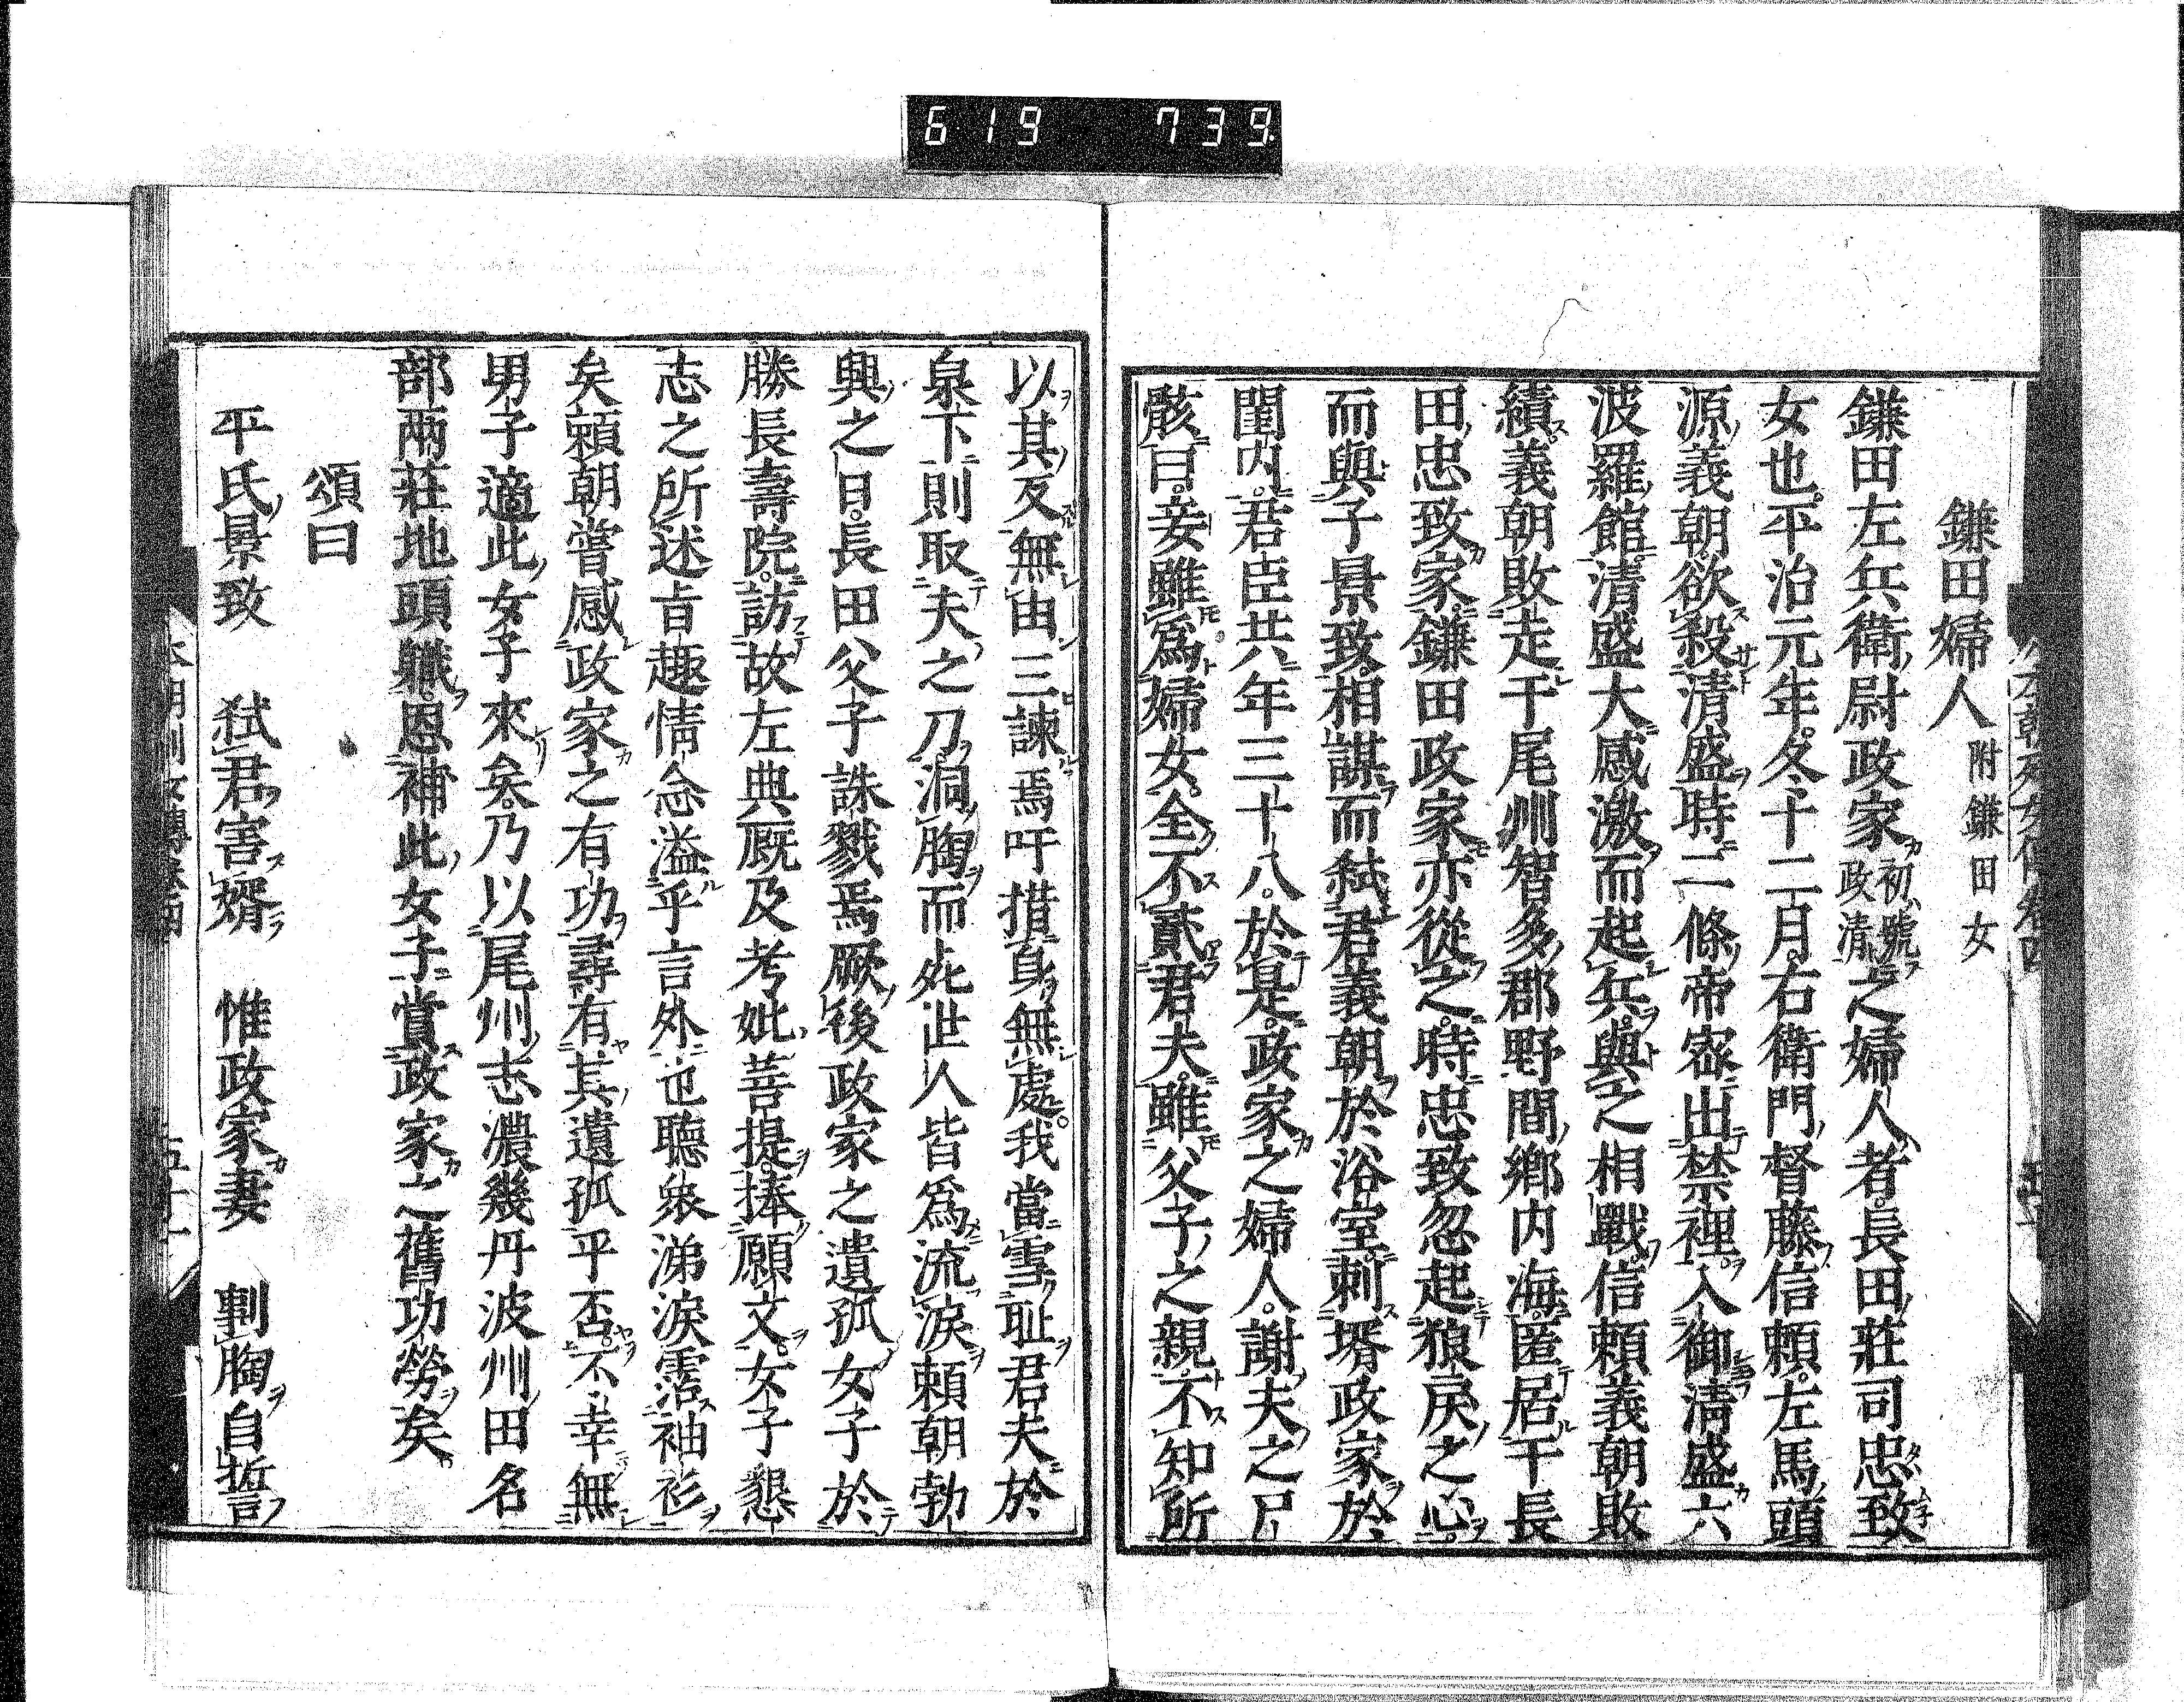 619 739
鎌田婦人 附鎌田女
鎌田左兵衛尉政家初號政清之婦人者。長田莊司忠致
女也。平治元年。冬十二月。右衛門督藤信頼。左馬頭
源義朝欲殺清盛時。二條帝密出禁裡。入御清盛六
波羅館。清盛大感激而起兵。與之相戰。信頼義朝敗
績。義朝敗走于尾州智多郡野間鄉内海。匿居于長
田忠致家。鎌田政家亦從之。時忠致忽起狼戾之心。
而與子景致。相謀而弑君義朝於浴室。刺壻政家於
閨内。君臣共年三十八。於是。政家之婦人。謝夫之尸
骸曰。妾雖爲婦女。全不貳君夫。雖父子之親。不知所
以其反無由三諫焉吁措身無處。我當雪耻君夫於
泉下則取夫之刀。洞胸而死世人皆爲流涙頼朝勃
興之日。長田父子誅戮焉厥後政家之遺孤女子於
勝長壽院。訪故左典厩及考妣菩提。捧願文。女子懇
志之所述旨趣情念溢乎言外也聽衆涕涙霑袖衫
矣頼朝嘗感政家之有功。尋有其遺孤乎否。不幸無
男子適此女子來矣。乃以尾州志濃幾丹波州田名
部兩莊地頭職。恩補此女子。賞政家之舊功勞矣。
頌曰
平氏景致 弑君害婿 惟政家妻 剚胸自誓